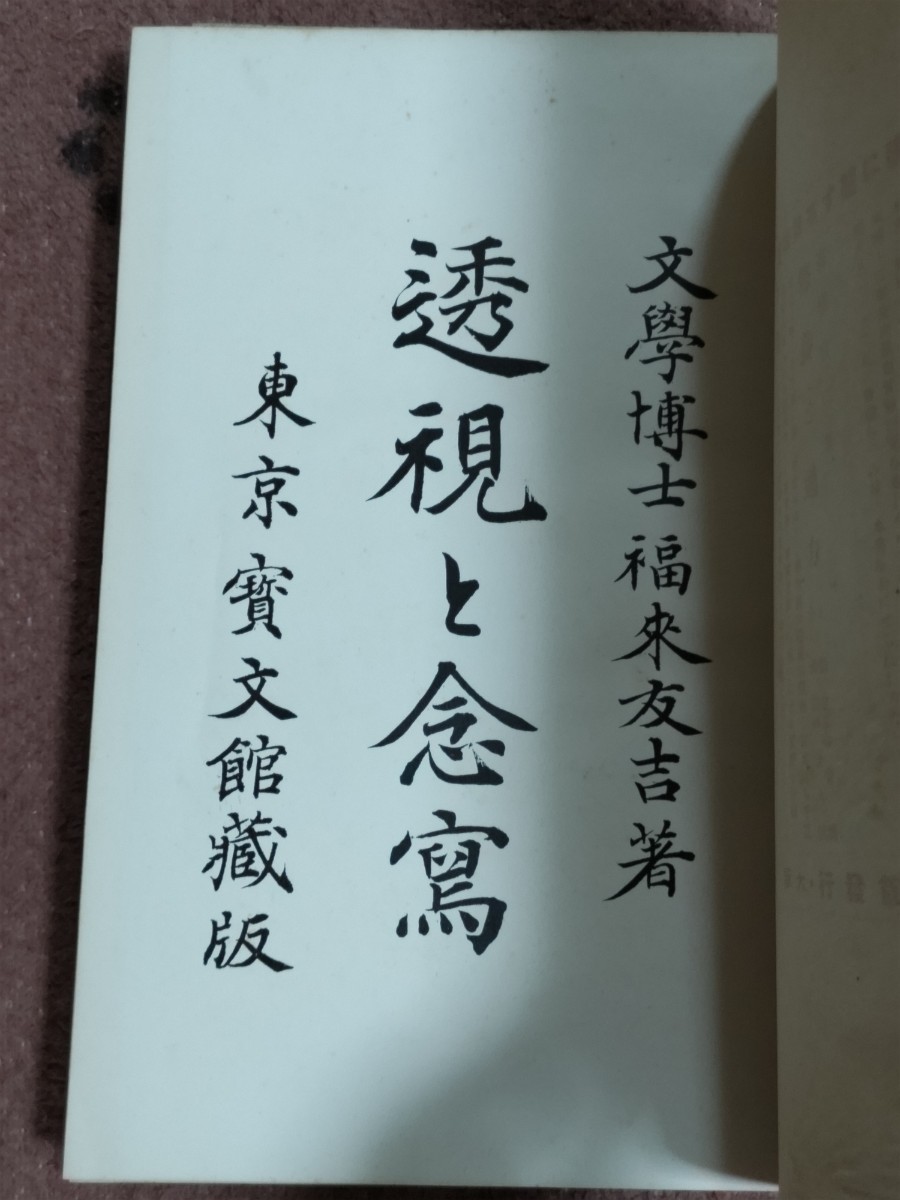 文學博士福來友吉著
透視と念寫
東京寳文館藏版